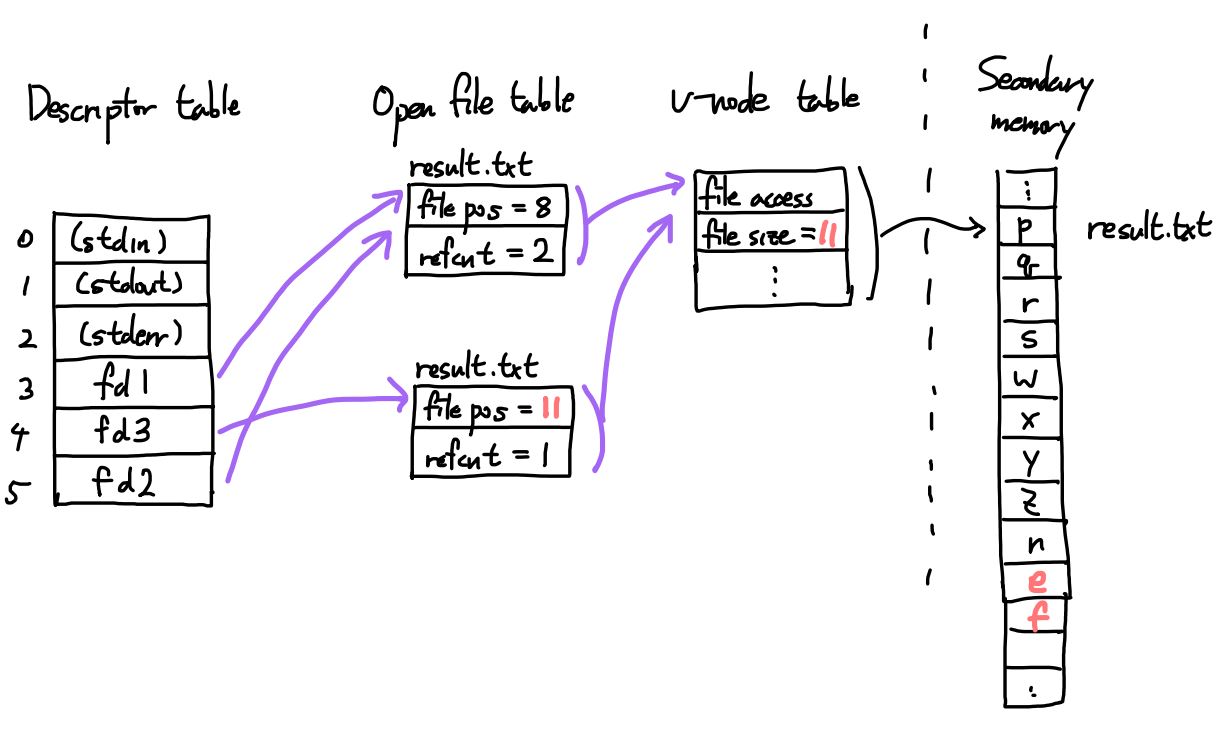 Descriptor table
0 (stdin)
1 (stdout)
2 (stderr)
3 fd1
4 fd3
5 fd2
Open file table
result.txt
file pos = 8
refcnt = 2
result.txt
file pos = 11
refcnt = 1
v-node table
file access
file size = 11
⋮
Secondary
memory
result.txt
⋮
p
q
r
s
w
x
y
z
n
e
f
⋮